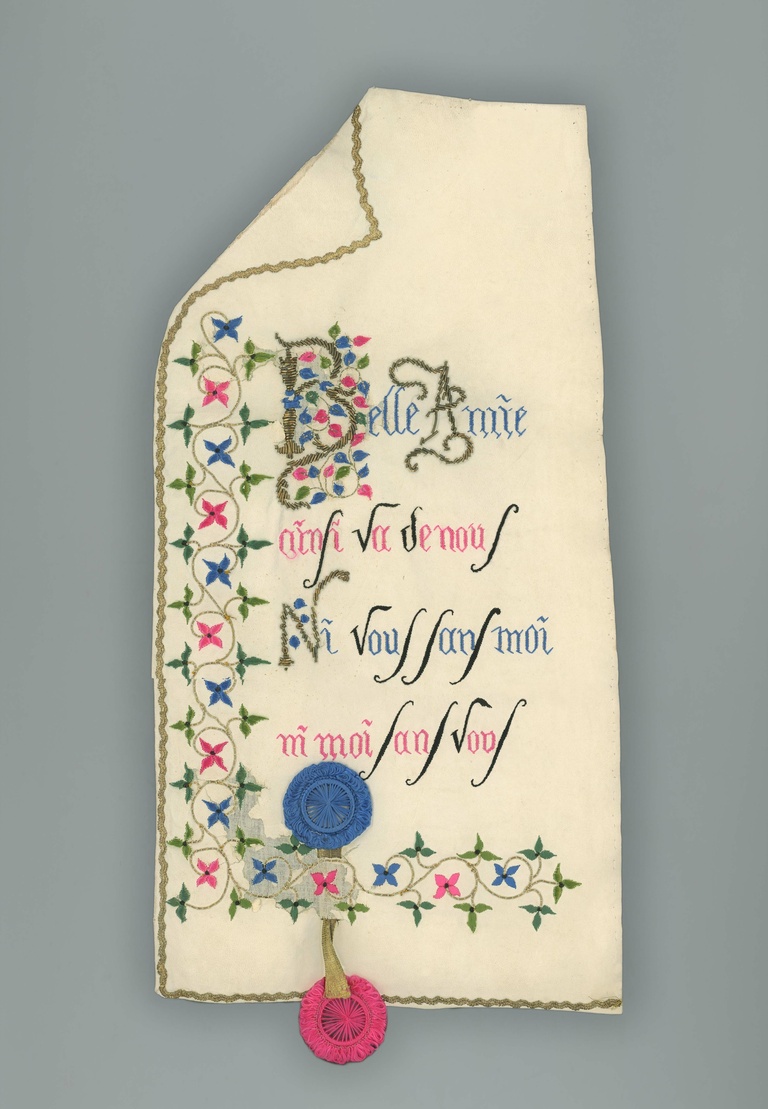 Belle Annie
ainsi va de nous
Ni vous sans moi
ni moi sans vous